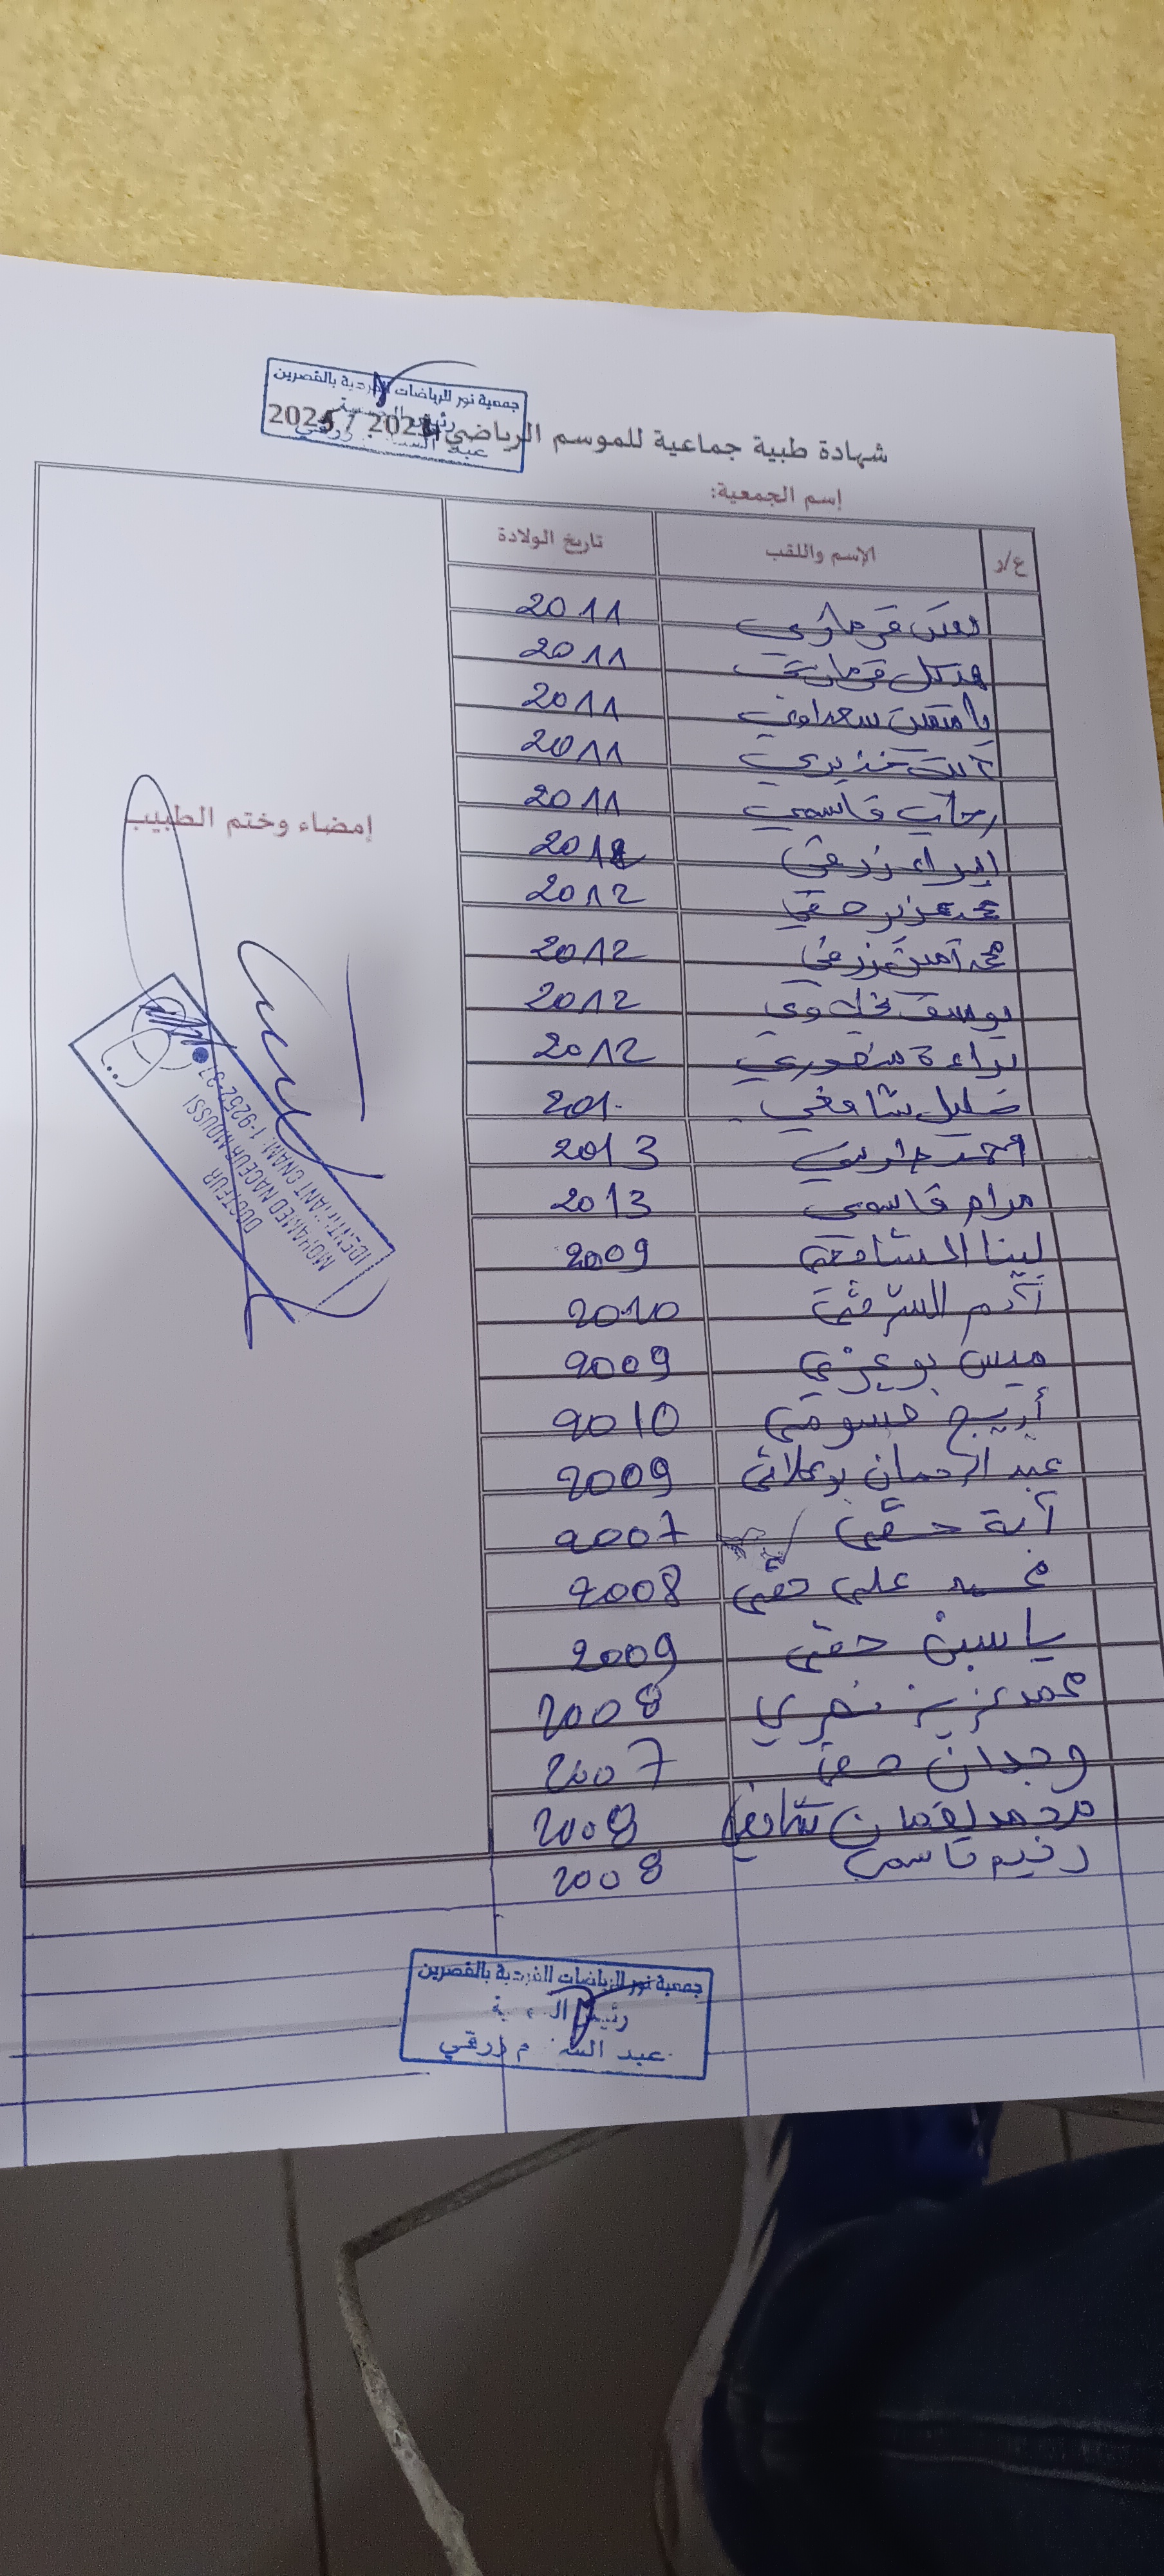 جمعية نور للرياضات الفردية بالقصرين
شهادة طبية جماعية للموسم الرياضي 2024 / 2025
إسم الجمعية:
ع/ر الإسم واللقب تاريخ الولادة
2011
2011
سعداوي 2011
2011
رحاب قاسمي 2011
2012
محمد عزيز حقي 2012
محمد أمين زرقي 2012
يوسف 2012
براءة منصوري 2012
خليل شافعي 201
2013
مرام قاسمي 2013
لينا الشافعي 2009
آدم 2010
ميس بوعزي 2009
أريج 2010
عبد الرحمان بوعلاقي 2009
آية حقي 2007
محمد علي حقي 2008
ياسين حقي 2009
محمد عزيز نصري 2008
وجدان حقي 2007
محمد لقمان شافعي 2008
رنيم قاسمي 2008
إمضاء وختم الطبيب
DOCTEUR
MOHAMED NACEUR MOUSSI
IDENTIFIANT CNAM: 1-9252-37
جمعية نور للرياضات الفردية بالقصرين
رئيس
عبد زرقي